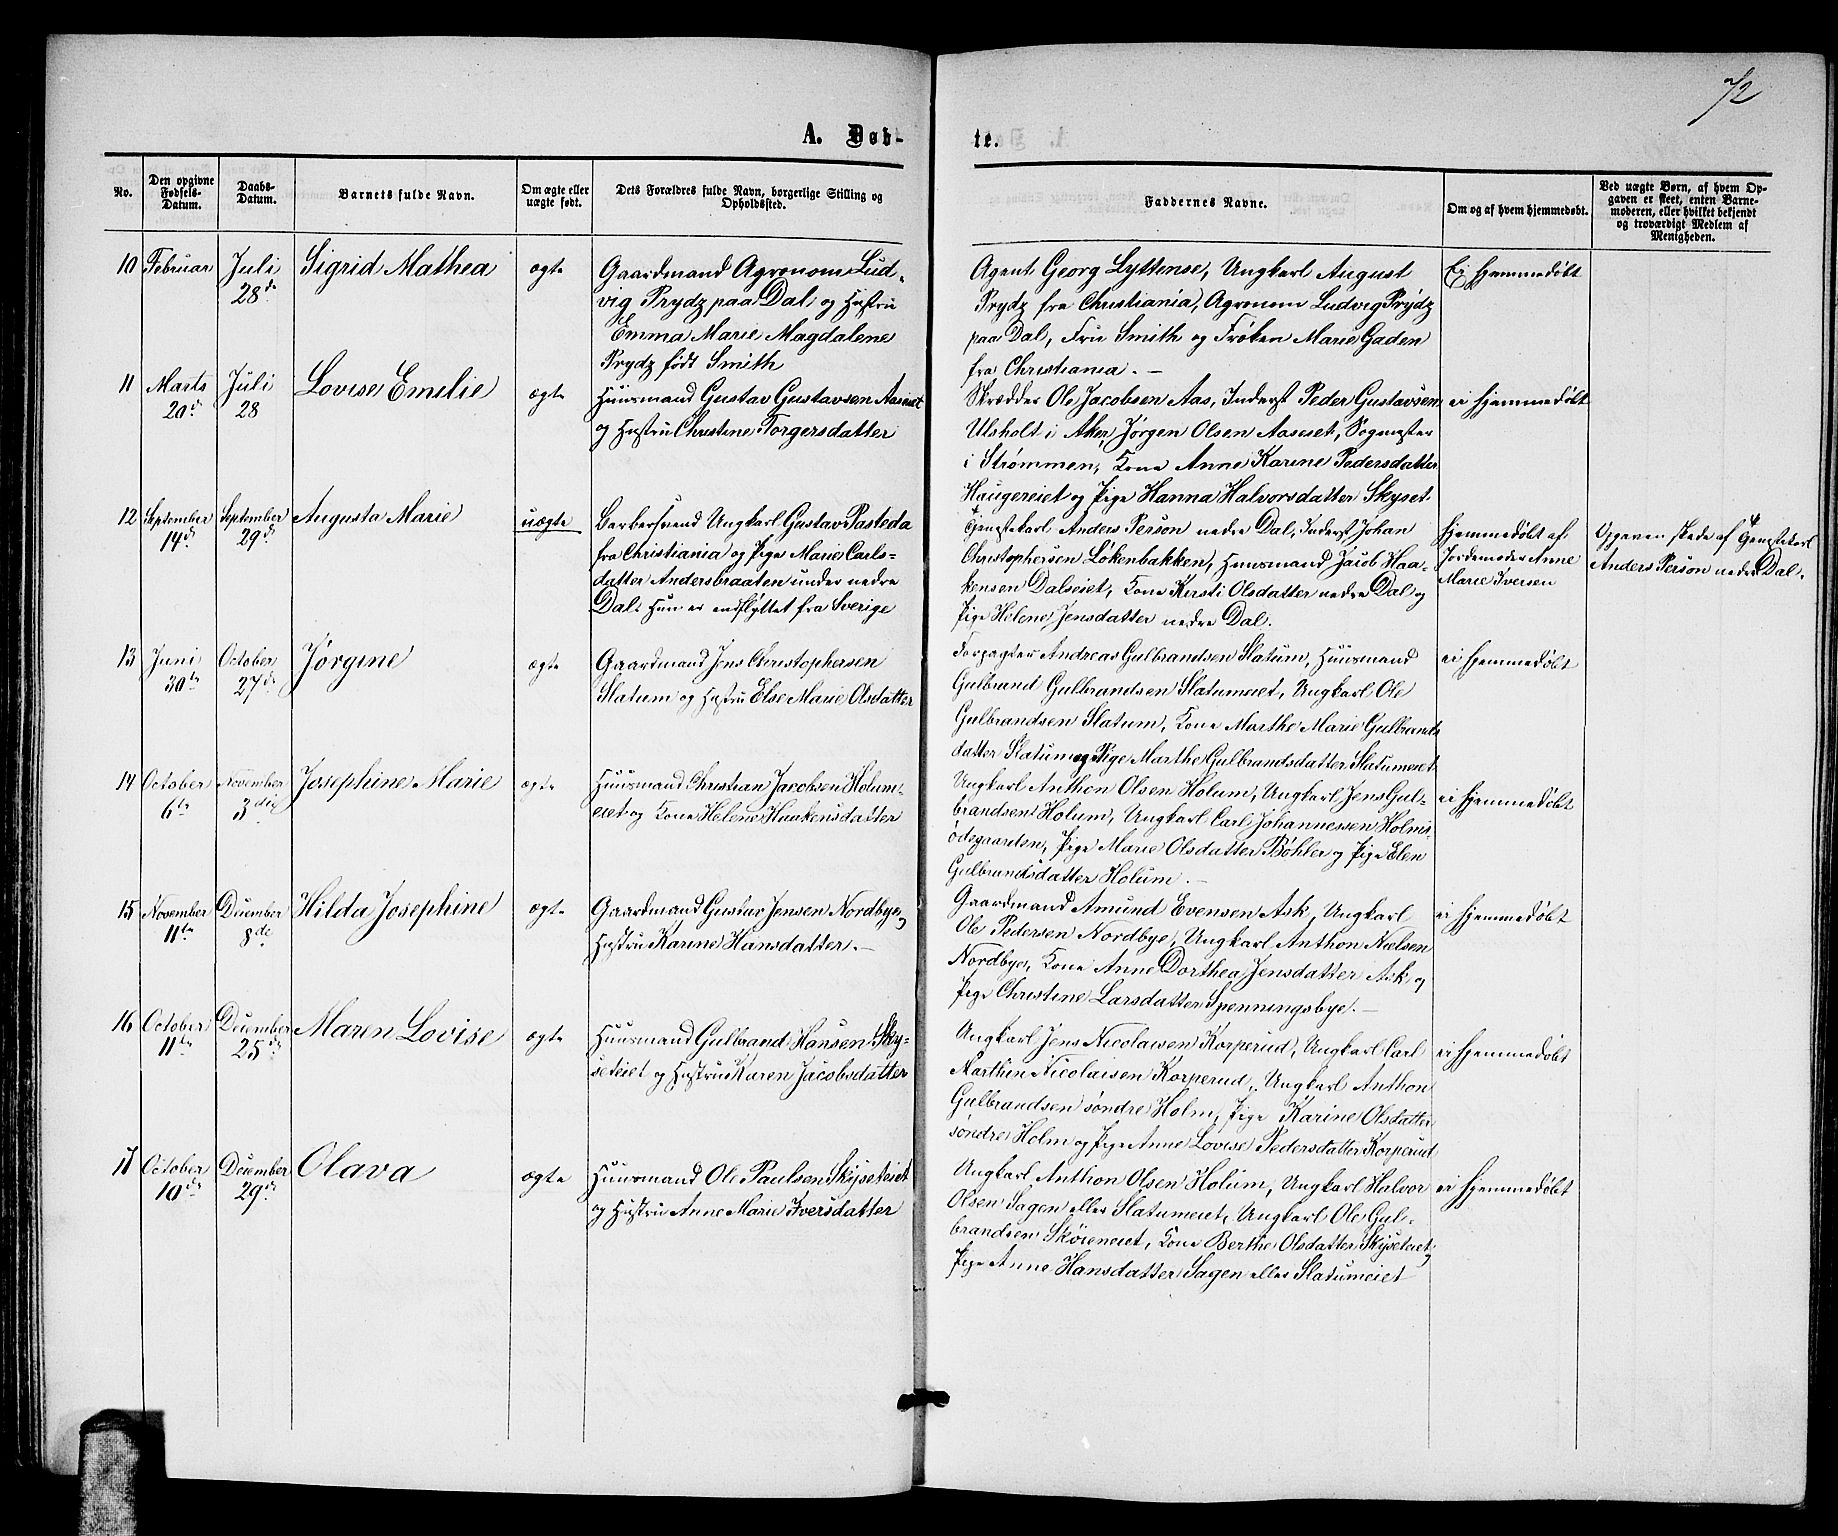 72
A. Døb-
te.
No.
Den opgivne Fødsels-Datum.
Daabs-Datum.
Barnets fulde Navn.
Om ægte eller uægte født.
Dets Forældres fulde Navn, borgerlige Stilling og Opholdssted.
Faddernes Navne.
Om og af hvem hjemmedøbt.
Ved uægte Børn, af hvem Op-
gaven er skeet, enten Barne-
moderen, eller hvilket bekjendt
og troværdigt Medlem af
Menigheden.
10 Februar Juli 28de Sigrid Mathea ægte
Gaardmand Agronom Lud-
vig Prydz paa Dal og Hustru
Emma Marie Magdalene
Prydz født Smith
Agent Georg Lyttense, Ungkarl August
Prydz fra Christiania, Agronom Ludvig Prydz
paa Dal, Fru Smith og Frøken Marie Gaden
fra Christiania. —
Ei hjemmedøbt
11 Marts 20de Juli 28 Lovise Emelie ægte
Huusmand Gustav Gustavsen Aaseiet
og Hustru Christine Torgersdatter
Skrædder Ole Jacobsen Aas, Inderst Peder Gustavsen
Ulsholt i Aker, Jørgen Olsen Aaseiet,
i Strømmen, Kone Anne Karine Pedersdatter
Haugereiet og Pige Hanna Halvorsdatter Skyset.
ei hjemmedøbt
12 September 14de September 29de Augusta Marie uægte
Barbersvend Ungkarl Gustav Pasteda
fra Christiania og Pige Marie Carls-
datter Andersbraaten under nedre
Dal. Hun er indflyttet fra Sverige
Gjenstekarl Anders Person nedre Dal, Inderst Johan
Christophersen Løkenbakken, Huusmand Jacob Haa-
kensen Dalseiet, Kone Kirsti Olsdatter nedre Dal og
Pige Helene Jensdatter nedre Dal.
Hjemmedøbt af
Jordemoder Anne
Marie Iversen
Opgaven skede af Gjenstekarl
Anders Person nedre Dal.
13 Juni 30te October 27de Jørgine ægte
Gaardmand Jens Christophersen
Slatum og Hustru Else Marie Olsdatter
Forpagter Andreas Gulbrandsen Slatum, Huusmand
Gulbrand Gulbrandsen Slatumeiet, Ungkarl Ole
Gulbrandsen Slatum, Kone Marthe Marie Gulbrands
datter Slatum og Pige Marthe Gulbrandsdatter Slatumeiet
ei hjemmedøbt
14 October 6te November 3die Josephine Marie ægte
Huusmand Christian Jacobsen Holum-
eiet og Kone Helene Haakensdatter
Ungkarl Anthon Olsen Holum, Ungkarl Jens Gul-
brandsen Holum, Ungkarl Carl Johannessen Holms
ødegaarden, Pige Marie Olsdatter Bøhler og Pige Elen
Gulbrandsdatter Holum. —
ei hjemmedøbt
15 November 11te December 8de Hilda Josephine ægte
Gaardmand Gustav Jensen Nordbye og
Hustru Karine Hansdatter. —
Gaardmand Amund Evensen Ask, Ungkarl
Ole Pedersen Nordbye, Ungkarl Anthon Nielsen
Nordbye, Kone Anne Dorthea Jensdatter Ask og
Pige Christine Larsdatter Spenningsbye. —
ei hjemmedøbt
16 October 11te December 25de Maren Lovise ægte
Huusmand Gulbrand Hansen Sky-
seteiet og Hustru Karen Jacobsdatter
Ungkarl Jens Nicolaisen Korperud, Ungkarl Carl
Marthin Nicolaisen Korperud, Ungkarl Anthon
Gulbrandsen søndre Holm, Pige Karine Olsdatter
søndre Holm og Pige Anne Lovise Pedersdatter Korperud
ei hjemmedøbt
17 October 10de December 29de Olava ægte
Huusmand Ole Paulsen Skyseteiet
og Hustru Anne Marie Iversdatter
Ungkarl Anthon Olsen Holum, Ungkarl Halvor
Olsen Sagen eller Slatumeiet, Ungkarl Ole Gul-
brandsen Skøieneiet, Kone Berthe Olsdatter Skyseteiet,
Pige Anne Hansdatter Sagen eller Slatumeiet
ei hjemmedøbt